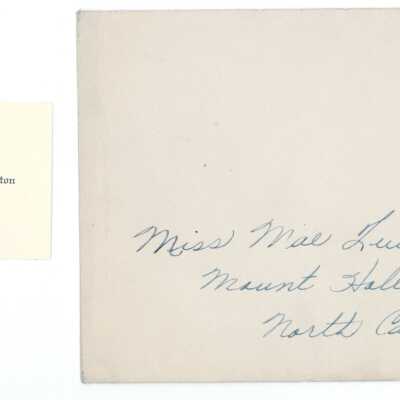 ton
Miss Mae
Mount Holl
North Ca